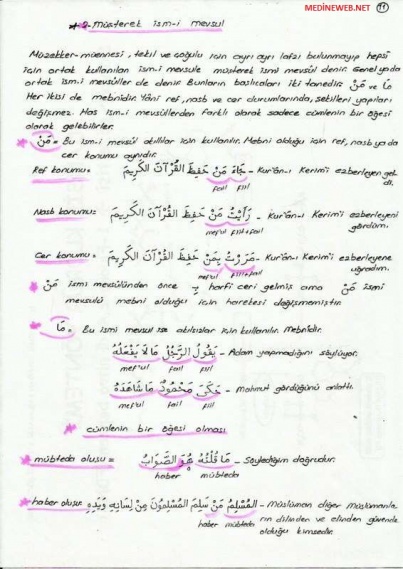 MEDİNEWEB.NET 11
* 2- Müşterek ism-i mevsul
Müzekker-müennesi, tekil ve çoğulu için ayrı ayrı lafzı bulunmayıp hepsi
için ortak kullanılan ism-i mevsule müşterek ismi mevsûl denir. Genel ya da
ortak ism-i mevsûller de denir. Bunların başlıcaları iki tanedir. مَنْ ve مَا
Her ikisi de mebnidir. Yâni ref, nasb ve cer durumlarında, şekilleri yapıları
değişmez. Has ism-i mevsullerden farklı olarak sadece cümlenin bir öğesi
olarak gelebilirler.
* مَنْ = Bu ism-i mevsûl akıllılar için kullanılır. Mebni olduğu için ref, nasb ya da
cer konumu aynıdır.
Ref konumu= جَاءَ مَنْ حَفِظَ الْقُرْآنَ الْكَرِيمَ - Kur'ân-ı Kerim'i ezberleyen gel-
fail fiil di.
Nasb konumu= رَأَيْتُ مَنْ حَفِظَ الْقُرْآنَ الْكَرِيمَ - Kur'ân-ı Kerim'i ezberleyeni
mef'ul fiil+fail gördüm.
Cer konumu= مَرَرْتُ بِمَنْ حَفِظَ الْقُرْآنَ الْكَرِيمَ - Kur'ân-ı Kerim'i ezberleyene
mef'ul fiil+fail uğradım.
* مَنْ ismi mevsûlünden önce بِ harfi ceri gelmiş ama مَنْ ismi
mevsulü mebni olduğu için harekesi değişmemiştir.
* مَا = Bu ismi mevsul ise akılsızlar için kullanılır. Mebnidir.
يَقُولُ الرَّجُلُ مَا لَا يَفْعَلُهُ - Adam yapmadığını söylüyor.
mef'ul fail fiil
حَكَى مَحْمُودٌ مَا شَاهَدَهُ - Mahmut gördüğünü anlattı.
mef'ul fail fiil
* cümlenin bir öğesi olması
* mübteda oluşu = مَا قُلْتُهُ هُوَ الصَّوَابُ - Söylediğim doğrudur.
haber mübteda
* haber oluşu= الْمُسْلِمُ مَنْ سَلِمَ الْمُسْلِمُونَ مِنْ لِسَانِهِ وَيَدِهِ - Müslüman diğer müslümanla-
haber mübteda rın dilinden ve elinden güvende
olduğu kimsedir.